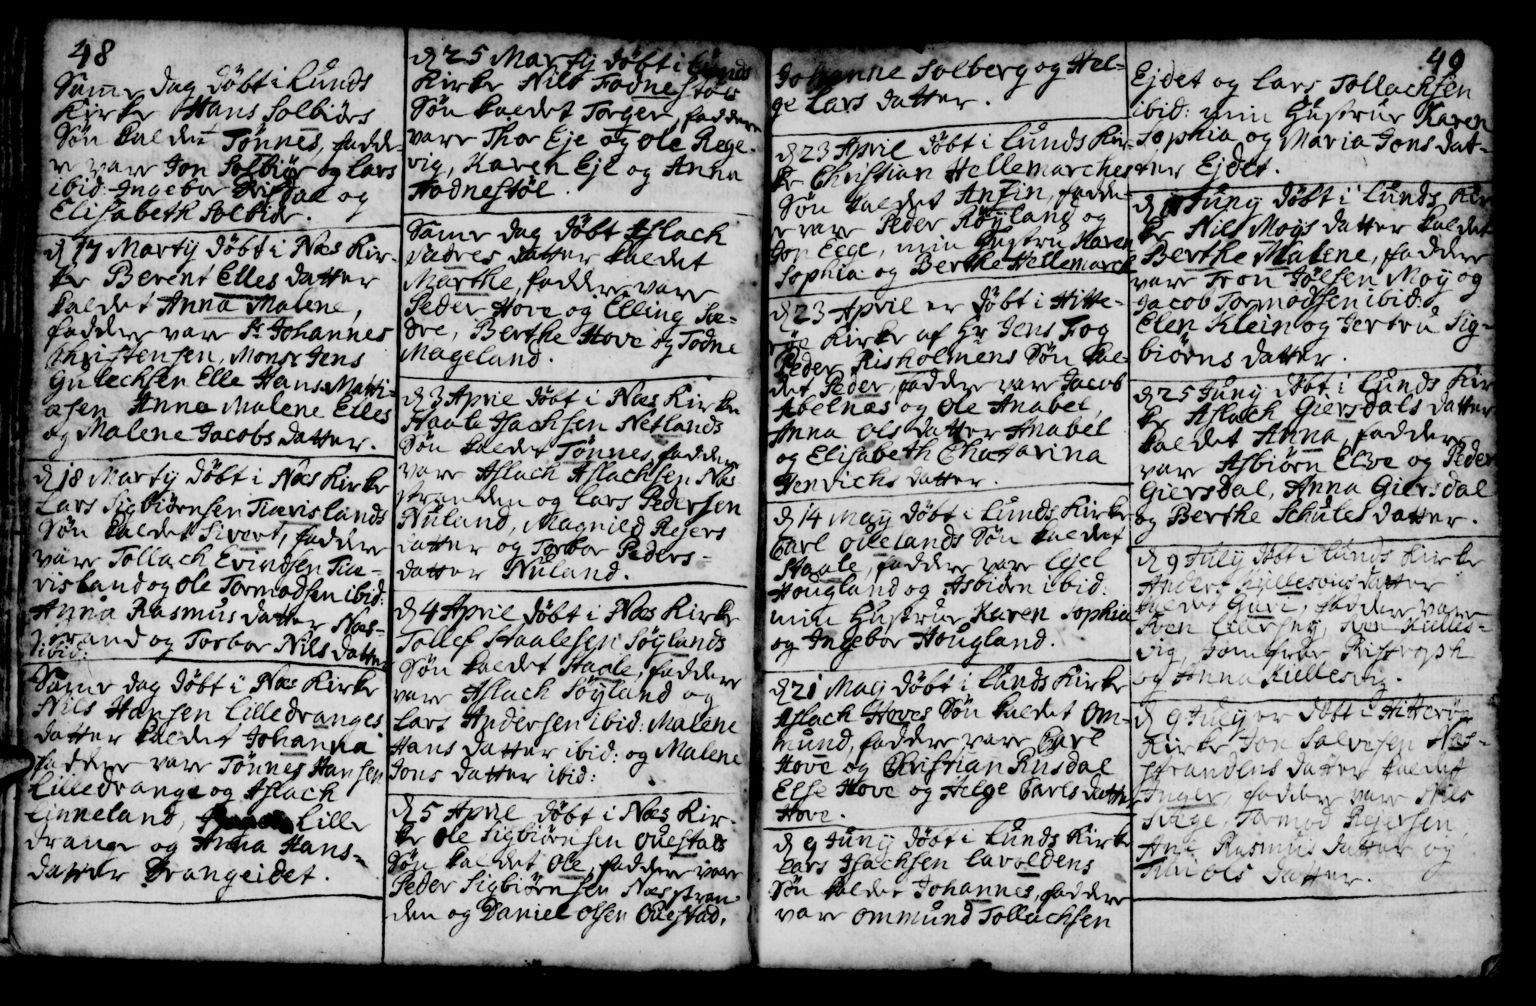 48
Samme dag døbt i Lunds
Kirke Hans Solbiørs
Søn kaldet Tønnes, fadde-
re vare Jon Solbiør og Lars
ibid: Ingebor og
Elisabeth Solbiør.
d 17 Martÿ døbt i Næs Kir-
ke Berent Elles datter
kaldet Anna Malene,
faddere vare Sr Johannes
Christensen, Monsr Jens
Gulechsen Elle Hans Matti-
asen Anna Malene Elles
og Malene Jacobs datter.
d 18 Martÿ døbt i Næs Kirke
Lars Sigbiørnsen Tiærislands
Søn kaldet Sivert, faddere
vare Tollach Evindsen Tiæ-
risland og Ole Tormodsen ibid:
Anna Rasmus datter Næs-
strand og Torbor Nils datter
ibid:
Samme dag døbt i Næs Kirke
Nils Hansen Lilledranges
datter kaldet Johanna
faddere vare Tønnes Hansen
Lilledrange og Aslach
Linneland, Lille
drange og Anna Hans-
datter Drangeidet.
d 25 Martÿ døbt i Lunds
Kirke Nils Todnestøls
Søn kaldet Torger, faddere
vare Thor Eje og Ole Rege-
vig, Karen Eje og Anna
Todnestøl.
Samme dag døbt Aslach
Sædres datter kaldet
Marthe, faddere vare
Peder Hove og Elling Sæ-
dre, Berthe Hove og Todne
Mageland.
d 3 April døbt i Næs Kirke
Haale Isachsen Netlands
Søn kaldet Tønnes, faddere
vare Aslach Aslachsen Næs
stranden og Lars Pedersen
Nuland, Magnild Rejers
datter og Torbor Peders-
datter Nuland.
d 4 April døbt i Næs Kirke
Tollef Haalesen Søÿlands
Søn kaldet Haale, faddere
vare Aslach Søÿland og
Lars Andersen ibid: Malene
Hans datter ibid: og Malene
Jons datter ibid:
d 5 April døbt i Næs Kir-
ke Ole Sigbiørnsen Ouestads
Søn kaldet Ole, faddere vare
Peder Sigbiørnsen Næsstran-
den og Daniel Olsen Ouestad,
49
Johanne Solberg og Hel-
ge Lars datter.
d 23 April døbt i Lunds Kir-
ke Christian Hellemarches
Søn kaldet Ansin, fadde-
re vare Peder Røÿland og
Jon Ege, min Hustru Karen
Sophia og Berthe Hellemarch
d 23 April er døbt i Hitte-
røe Kirke af Hr Jens Fog
Peder Risholmens Søn kal-
det Peder, faddere vare Jacob
Abelnæs og Ole Anabel,
Anna Ols datter Anabel
og Elisabeth Chatarina
Hendichs datter.
d 14 Maÿ døbt i Lunds Kirke
Carl Ollelands Søn kaldet
Staale, faddere vare EGel
Hougland og Asbiørn ibid:
min Hustrue Karen Sophia
og Ingebor Hougland.
d 21 Maÿ døbt i Lunds Kirke
Aslach Hoves Søn kaldet Om-
mund, faddere vare Carl
Hove og Christian Rusdal
Else Hove og Helge Carls datter
Hove.
d 9 Junÿ døbt i Lunds Kirke
Lars Isachsen Lavoldens
Søn kaldet Johannes, faddere
vare Ommund Tollachsen
Ejdet og Lars Tollachsen
ibid: min Hustrue Karen
Sophia og Maria Jons dat-
ter Ejdet.
d Junÿ døbt i Lunds Kir
ke Nils Moÿs datter kaldet
Berthe Malene, faddere
vare Tron Joelsen Moÿ og
Jacob Tormodsen ibid:
Elen Klein og Jertru Sig-
biørns datter.
d 25 Junÿ døbt i Lunds Kir
ke Aslach Giersdals datter
kaldet Anna, faddere
vare Asbiørn Elve og Peder
Giersdal, Anna Giersdal
og Berthe Schules datter.
d 9 Julÿ døbt i Lunds Kirke
Anders Kullesvigs datter
kaldet Guri, faddere vare
Sven Kulles-
vig,
og Anna Kullesvig.
d 9 Julÿ er døbt i Hitterøe
Kirke Jon Salvesen Næs-
strandens datter kaldet
Inger, faddere vare Nils
Svege, Tormod Rejersen,
Ane Rasmus datter og
Ols datter.